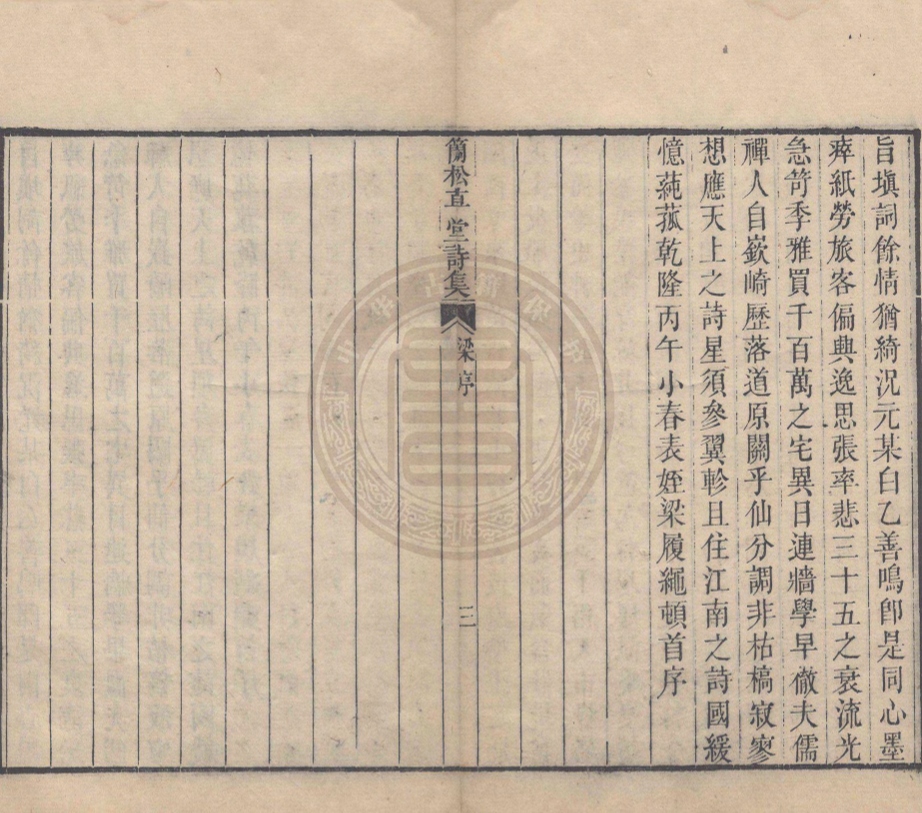 旨塡詞餘情猶綺況元某白乙善鳴卽是同心墨
瘁紙勞旅客偏興逸思張率悲三十五之衰流光
急笴季雅買千百萬之宅異日連牆學早徹夫儒
禪人自嶔崎歷落道原關乎仙分調非枯槁寂寥
想應天上之詩星須參翼軫且住江南之詩國緩
憶蒓菰乾隆丙午小春表姪梁履繩頓首序
簡松草堂詩集
梁序
三